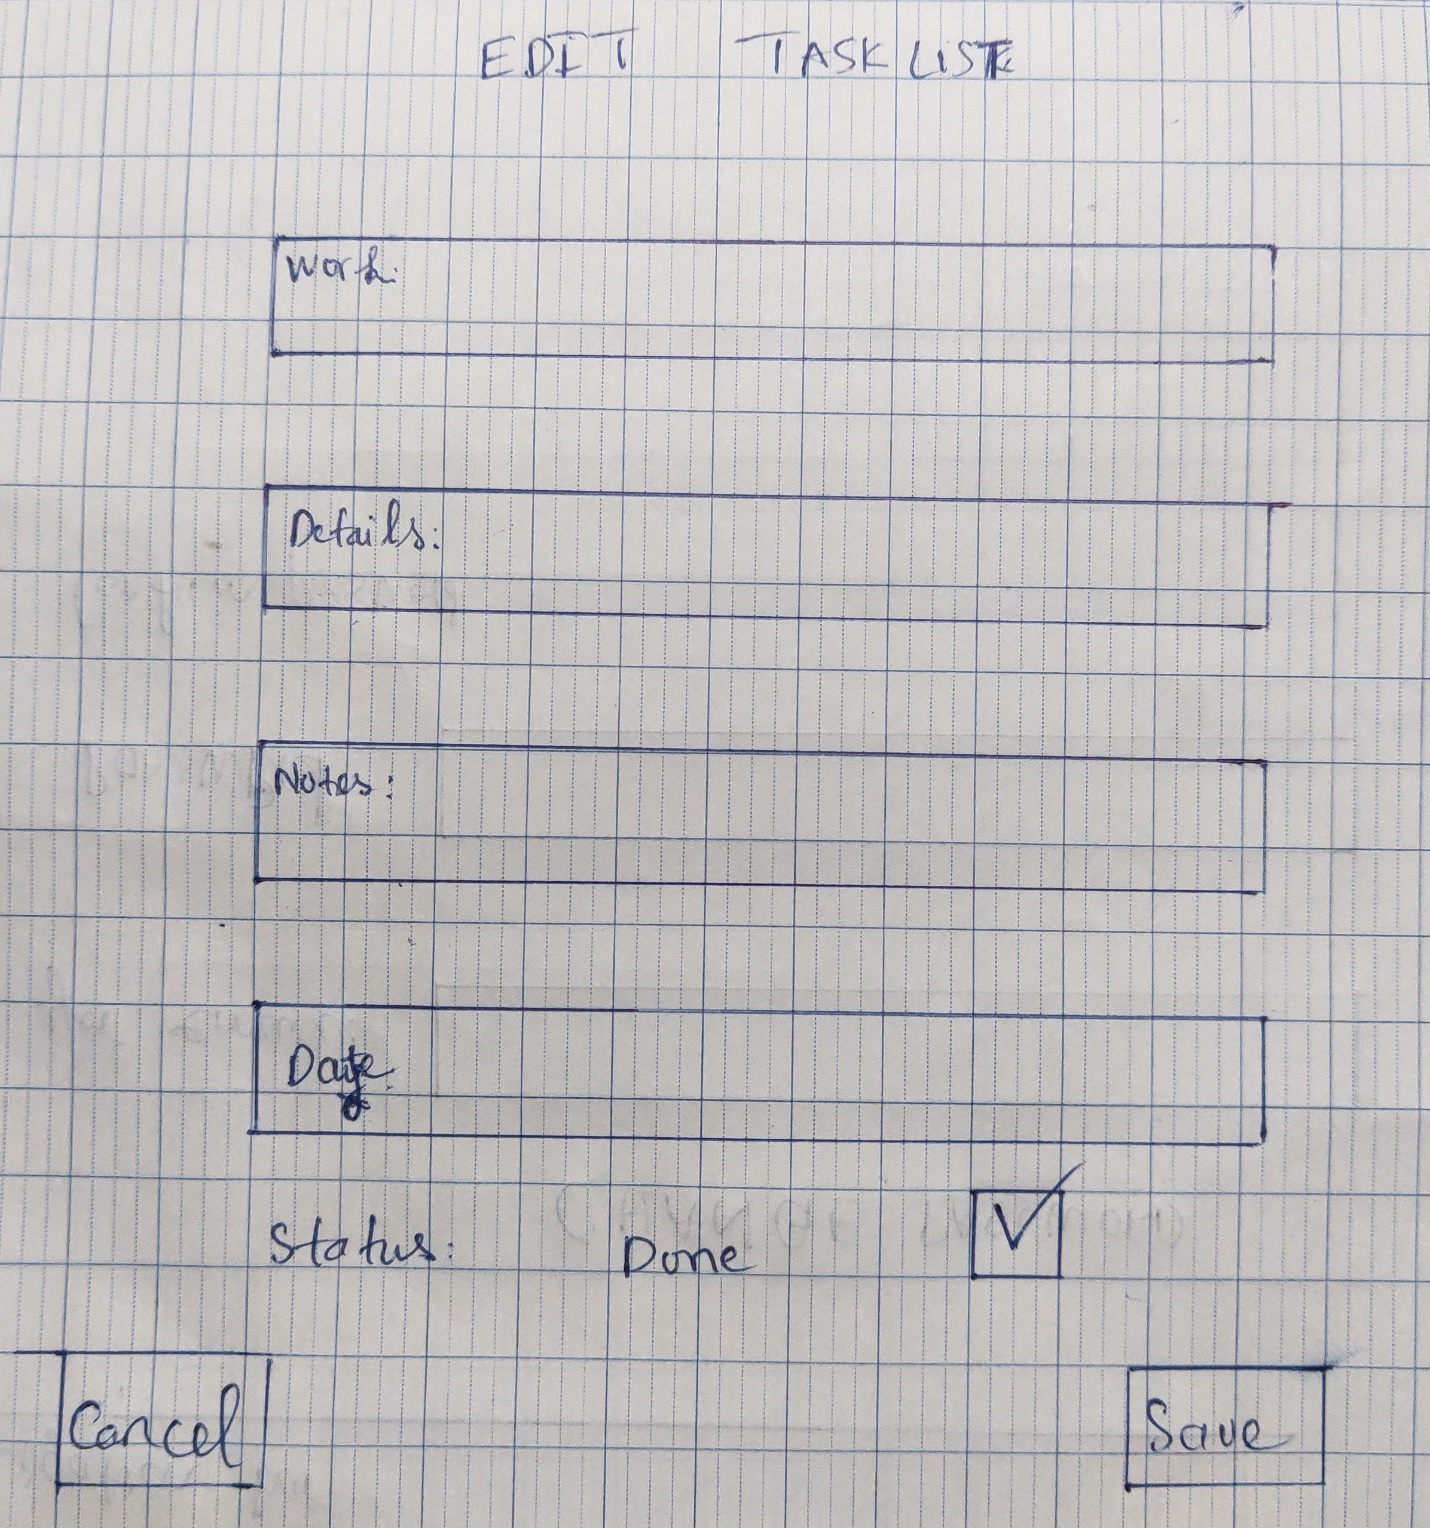 EDIT TASK LIST
Work:
Details:
Notes:
Date:
Status: Done
Cancel
Save